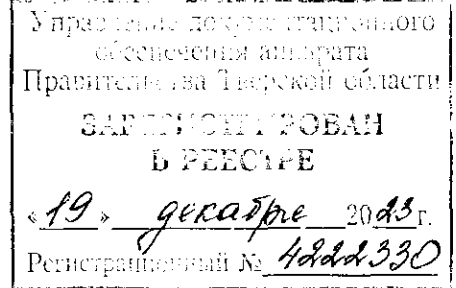 Управление документационного
обеспечения аппарата
Правительства Тверской области
ЗАРЕГИСТРИРОВАН
В РЕЕСТРЕ
«19» декабре 2023 г.
Регистрационный № 4222330